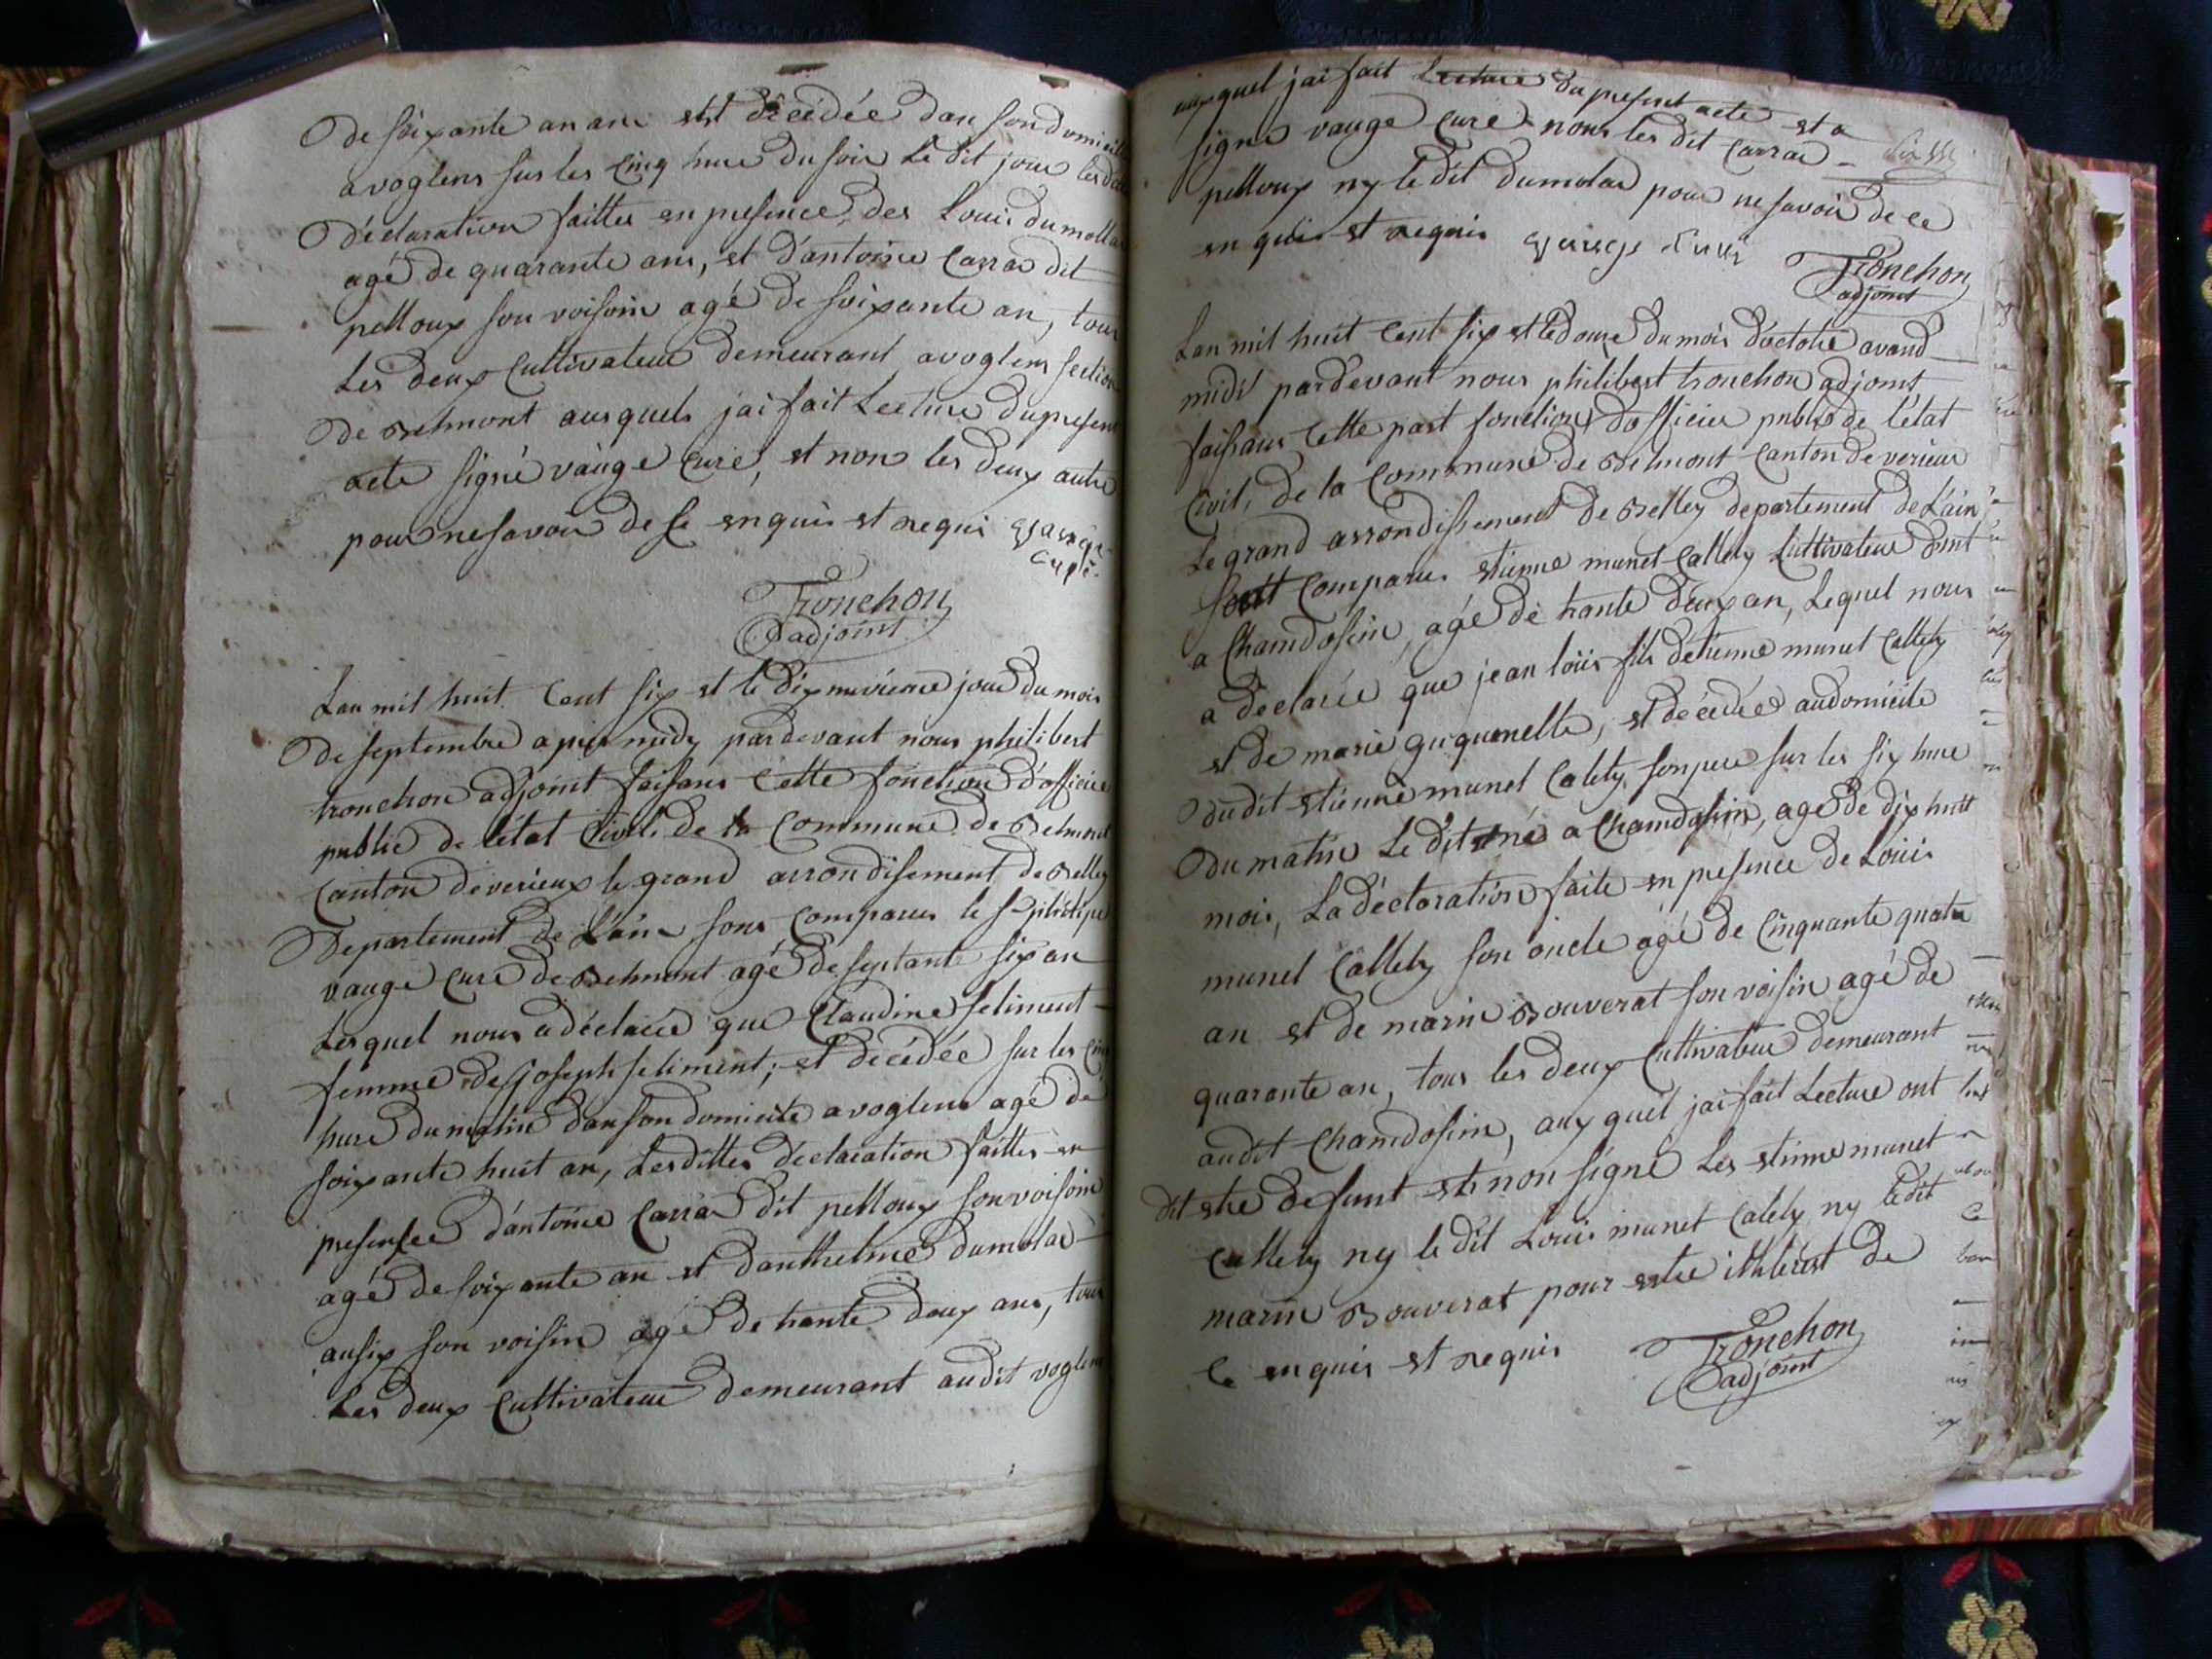 De soixante an ans est décédée dan son domicile
a voglens sur les cinq hure du soir le dit jour les dit
Déclaration faittes en presence des Louis dumollar
agé de quarante ans, et d'antoine Carra dit
pelloux son voisoin agé de soixante an, tous
Les deux Cultivateur demeurant a voglens section
De Belmont ausquels jai fait Lecture du present
acte signé vauge curé, et non les deux autre
pour ne savoir de se enquis et requi vauge
curé
Tronchon
adjoint
Lan mil huit Cent six et le dix neuvieme jour du mois
De septembre apres midy pardevant nous philibert
tronchon adjoint faisans Cette fonction d'officier
public de létat Civil de la Commune de Belmont
Canton de verieux le grand arrondisement de Belley
Departement de Láin sons Comparus le sr philipe
vauge Curé de Belmont agé de septante six an
Lesquel nous a déclarée que Claudine seliment
femme de joseph seliment, et décédée sur les cinq
hure du matin dan son domicile a voglens agé de
soixante huit an, Lesdittes déclaration faittes en
presensce d'antoine Carra dit pelloux son voisoin
agé de soixante an et d'anthelme dumolar
ausix son voisin agé de trante deux ans, tous
Les deux Cultivateur demeurant audit voglens
auxquel jai fait Lecture du present acte et a
signé vauge curé nons les dit Carra
pelloux ny le dit dumolar pour ne savoir de ce
en quis et requis vauge curé
Tronchon
adjoint
Lan mil huit Cent six et le douze du mois d'octobre avand
midi pardevant nous philibert tronchon adjoint
faisans Cette part fonction d'officier public de létat
Civil, de la Commune de Belmont Canton de verieux
Le grand arrondissement de Belley departement de Láin
sont Comparus etienne munet Callety Cultivateur
a Chamdosin, agé de trante deux an, Lequel nous
a déclarée que jean loüis fils détienne munet Callety
et de marie guquenette, et décédée au domicile
du dit etienne munet Calety son pere sur les six hure
du matin Le dit né a Chamdosin, agé de dix huit
mois, La déclaration faite en presence de Loüis
munet Callety son oncle agé de Cinquante quatre
an et de marin Bouverat son voisin agé de
quarante an, tous les deux Cultivateur demeurant
audit Chamdosin, aux quel jai fait Lecture ont
dit etre defunt et non signé Les etienne munet
Callety ny le dit Louis munet Calety ny ledit
marin Bouverat pour estre ilhlérest de
Ce enquis et requis
Tronchon
adjoint